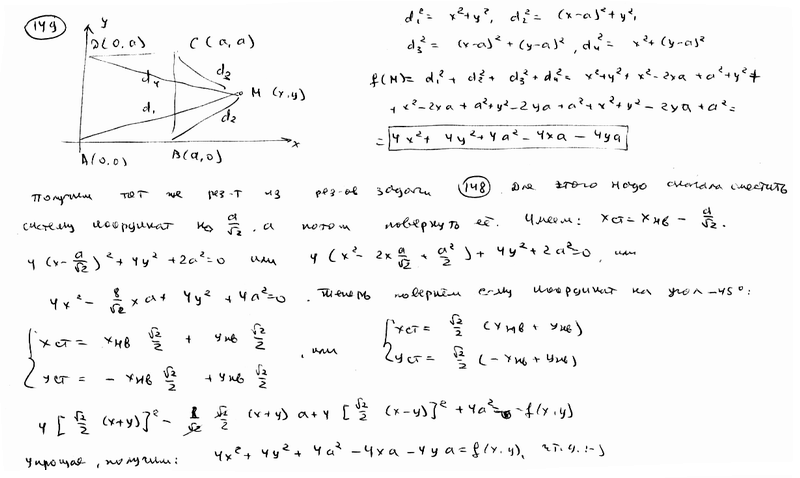 149
y
D(0,a)
C(a,a)
d₂
d₄
M(x,y)
d₁
d₂
x
A(0,0)
B(a,0)
d₁² = x²+y², d₂² = (x-a)²+y²,
d₃² = (x-a)²+(y-a)², d₄² = x²+(y-a)²
f(M) = d₁²+d₂²+d₃²+d₄² = x²+y²+x²-2xa+a²+y²+
+x²-2xa+a²+y²-2ya+a²+x²+y²-2ya+a²=
= 4x²+4y²+4a²-4xa-4ya
Получим тот же рез-т из рез-ов задачи 148 Для этого надо сначала сместить
систему координат на a/√2, а потом повернуть её. Имеем: xст = xнв - a/√2.
4(x-a/√2)²+4y²+2a²=0 или 4(x²-2x a/√2 + a²/2)+4y²+2a²=0, или
4x² - 8/√2 xa + 4y² + 4a²=0. Теперь повернём с-му координат на угол -45°:
{ xст = xнв √2/2 + yнв √2/2
yст = -xнв √2/2 + yнв √2/2
, или
{ xст = √2/2 (xнв + yнв)
yст = √2/2 (-xнв + yнв)
4[√2/2 (x+y)]² - 8/√2 √2/2 (x+y)a + 4[√2/2 (x-y)]² + 4a² = f(x,y)
Упрощая, получим: 4x²+4y²+4a²-4xa-4ya = f(x,y), ч.т.д. :-)